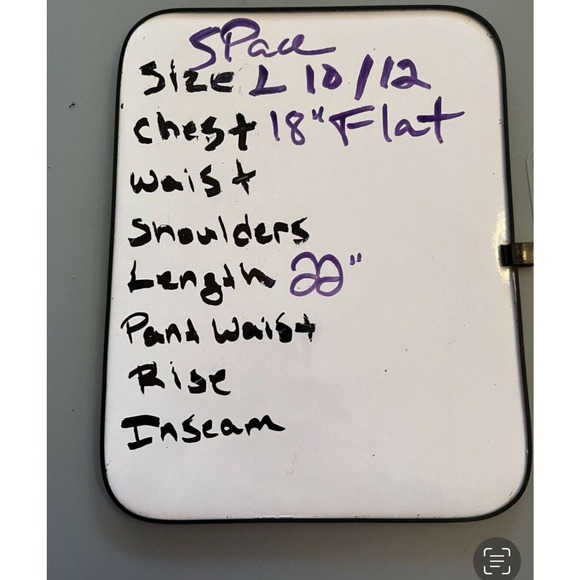 SPace
Size L 10/12
Chest 18" Flat
Waist
Shoulders
Length 22"
Pant Waist
Rise
Inseam